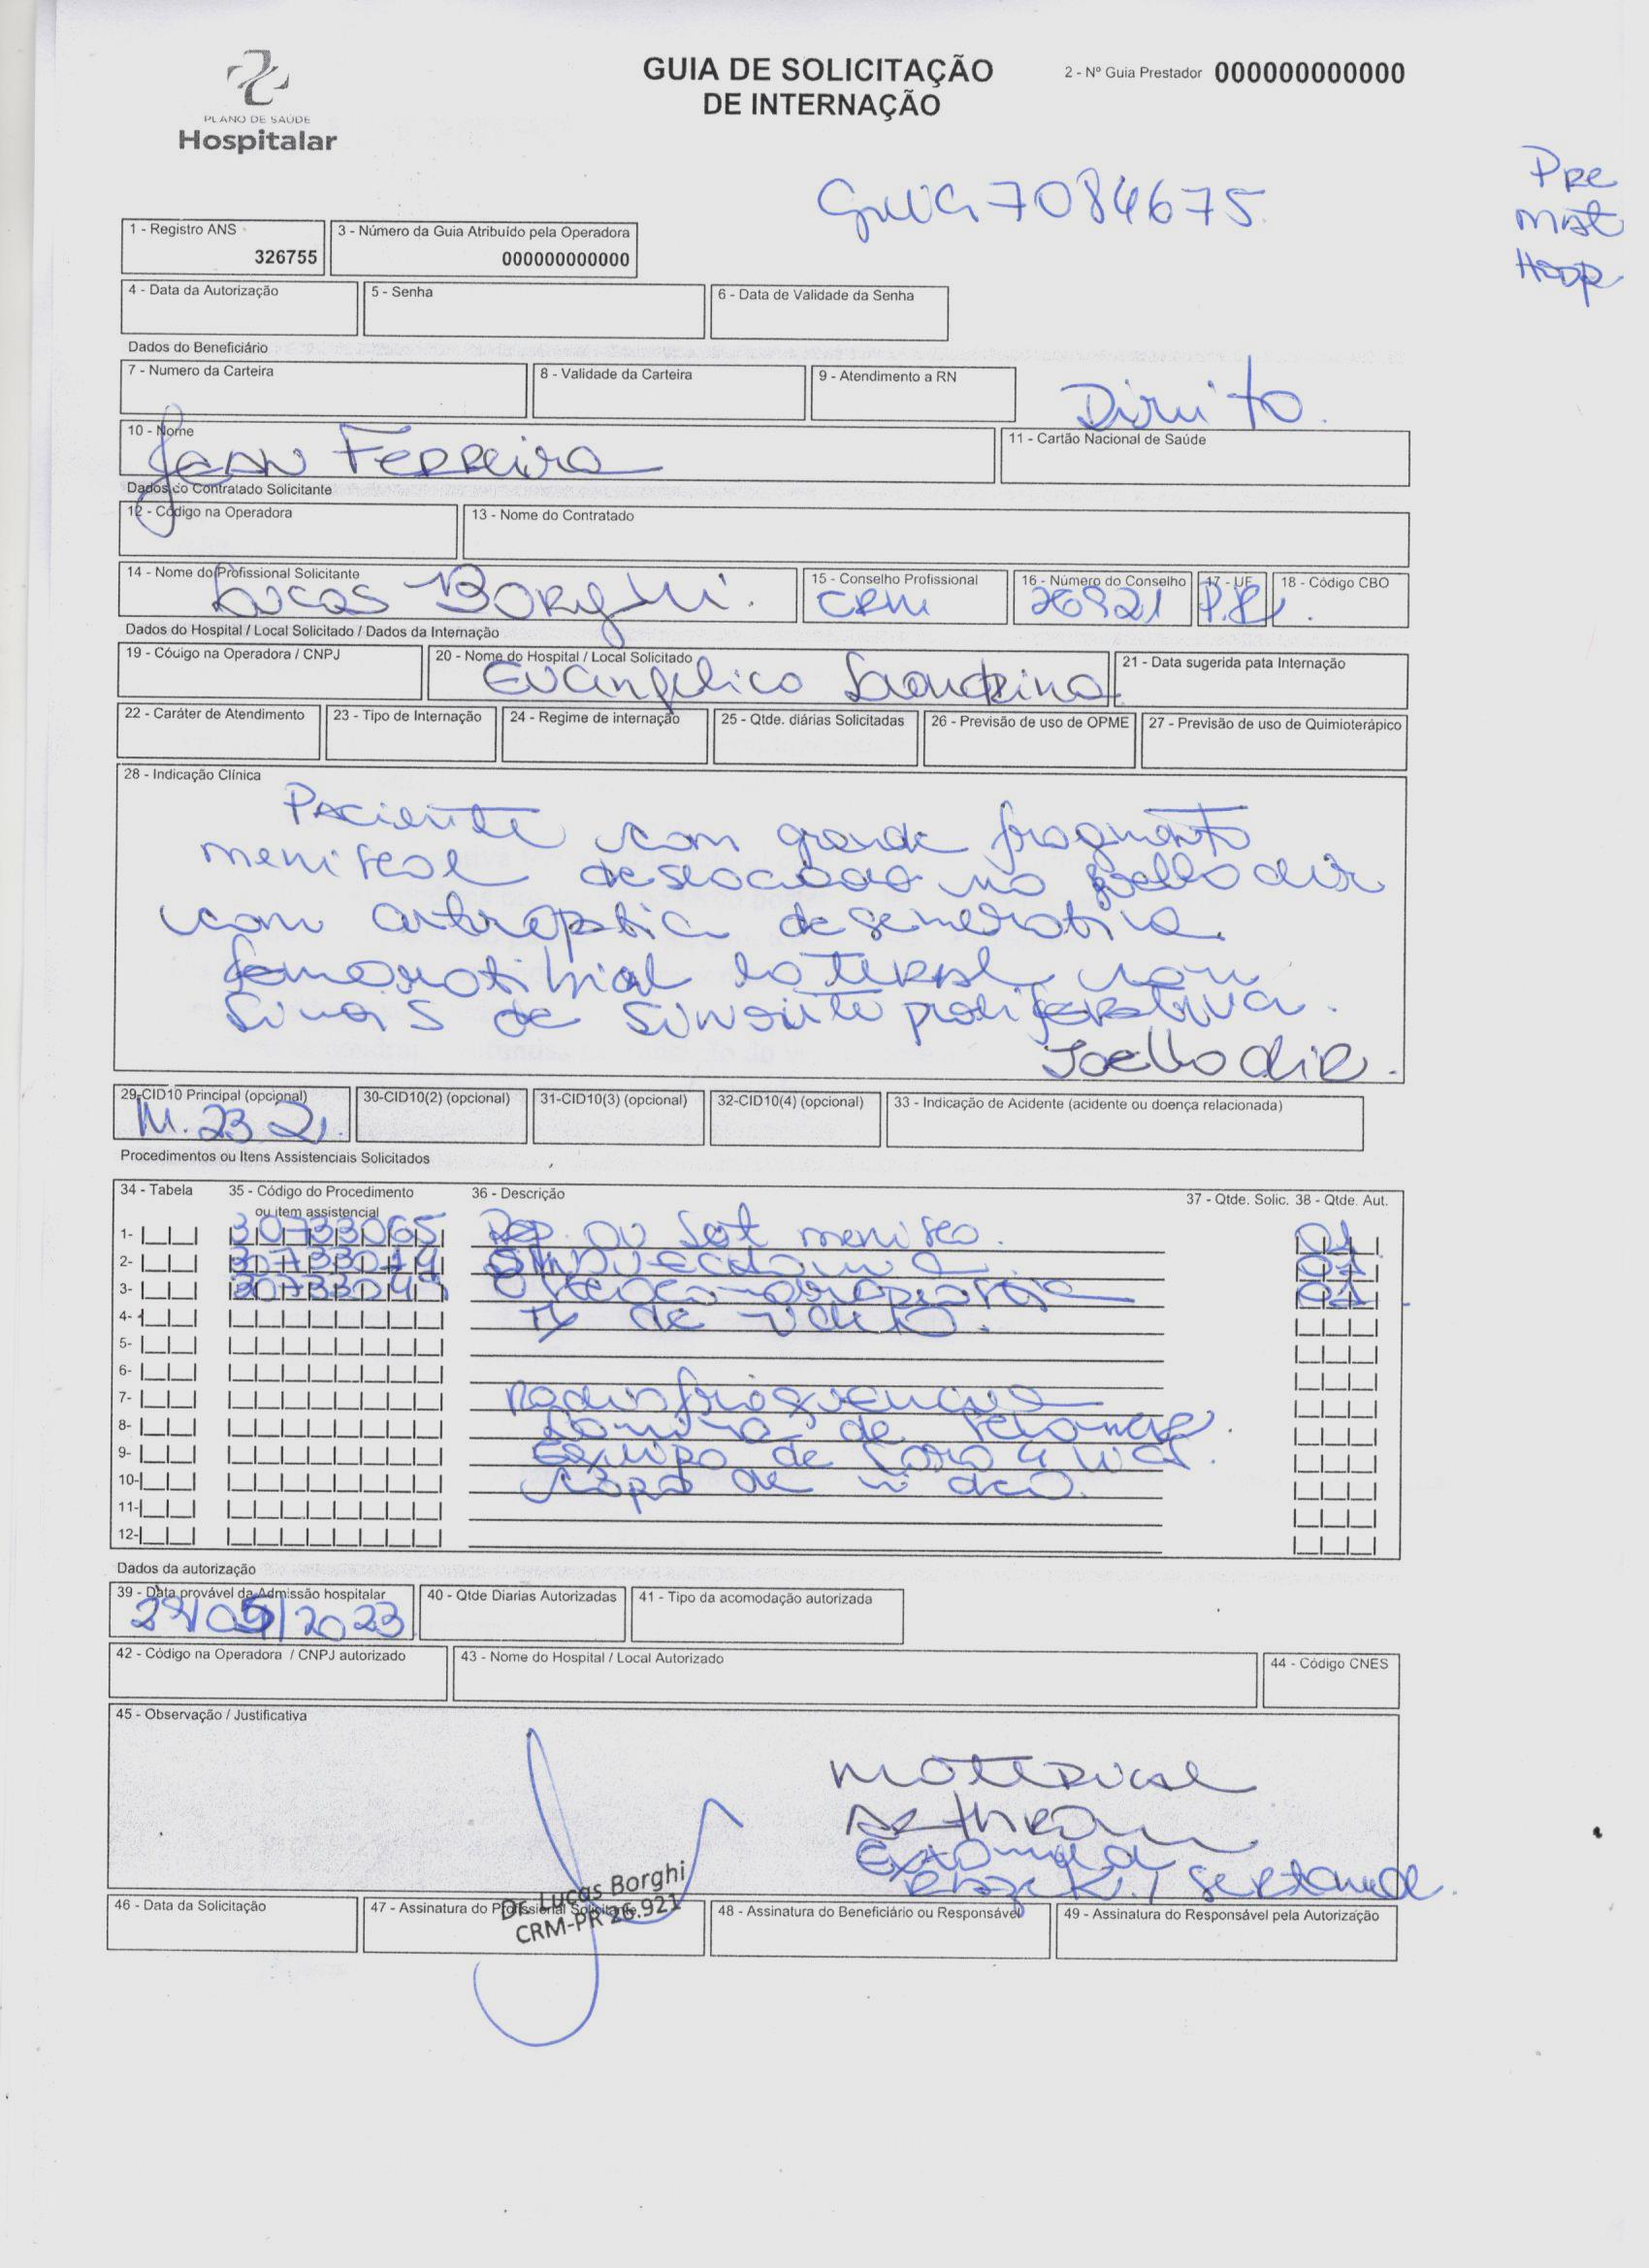 PLANO DE SAÚDE
Hospitalar
GUIA DE SOLICITAÇÃO
DE INTERNAÇÃO
2 - Nº Guia Prestador 000000000000
Guia 7084675
Pre
Mat
Hosp
1 - Registro ANS
326755
3 - Número da Guia Atribuído pela Operadora
000000000000
4 - Data da Autorização
5 - Senha
6 - Data de Validade da Senha
Dados do Beneficiário
7 - Numero da Carteira
8 - Validade da Carteira
9 - Atendimento a RN
Direito
10 - Nome
Jean Ferreira
11 - Cartão Nacional de Saúde
Dados do Contratado Solicitante
12 - Código na Operadora
13 - Nome do Contratado
14 - Nome do Profissional Solicitante
Lucas Borghi.
15 - Conselho Profissional
CRM
16 - Número do Conselho
26921
17 - UF
PR
18 - Código CBO
Dados do Hospital / Local Solicitado / Dados da Internação
19 - Código na Operadora / CNPJ
20 - Nome do Hospital / Local Solicitado
Evangelico Londrina
21 - Data sugerida pata Internação
22 - Caráter de Atendimento
23 - Tipo de Internação
24 - Regime de internação
25 - Qtde. diárias Solicitadas
26 - Previsão de uso de OPME
27 - Previsão de uso de Quimioterápico
28 - Indicação Clínica
Paciente com grande fragmento
meniscal deslocado no joelho dir
com artropatia degenerativa
femorotibial lateral com
sinais de sinovite proliferativa.
Joelho dir.
29-CID10 Principal (opcional)
M. 23 2
30-CID10(2) (opcional)
31-CID10(3) (opcional)
32-CID10(4) (opcional)
33 - Indicação de Acidente (acidente ou doença relacionada)
Procedimentos ou Itens Assistenciais Solicitados
34 - Tabela
35 - Código do Procedimento
ou item assistencial
36 - Descrição
37 - Qtde. Solic. 38 - Qtde. Aut.
1- 30733065 Rep. ou Sut menisco. 01
2- 01
3- 01
4- Tx de video.
5-
6-
7- Radiofrequencia
8- Lamina de
9- Equipo de
10-
11-
12-
Dados da autorização
39 - Data provável da Admissão hospitalar
29/05/2023
40 - Qtde Diarias Autorizadas
41 - Tipo da acomodação autorizada
42 - Código na Operadora / CNPJ autorizado
43 - Nome do Hospital / Local Autorizado
44 - Código CNES
45 - Observação / Justificativa
Material
Arthrom
46 - Data da Solicitação
47 - Assinatura do Profissional Solicitante
Dr. Lucas Borghi
CRM-PR 26.921
48 - Assinatura do Beneficiário ou Responsável
49 - Assinatura do Responsável pela Autorização